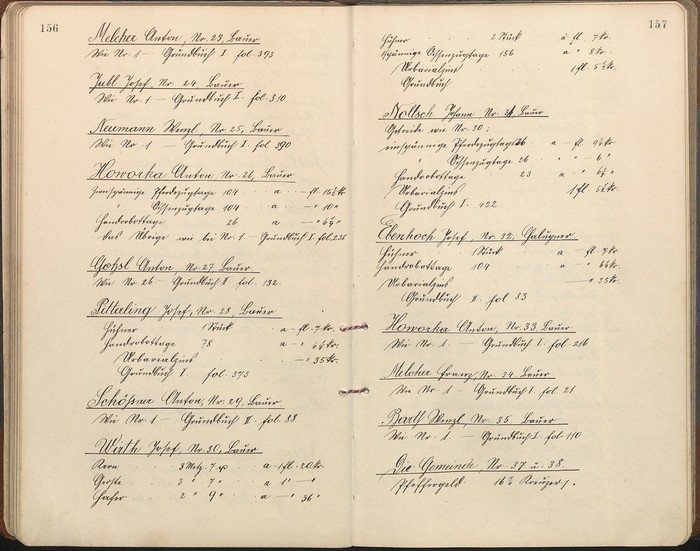 156
Melcher Anton, Nr. 23, Bauer
Wie Nr. 1 — Grundbuch I. fol. 393
Jubl Josef, Nr. 24, Bauer
Wie Nr. 1 — Grundbuch I. fol. 310
Neumann Wenzl, Nr. 25, Bauer
Wie Nr. 1 — Grundbuch I. fol. 390
Howorka Anton, Nr. 26, Bauer
Pferdezugtage 104 . a . — fl. 15½ kr.
" Ochsenzugtage 104 - a - — " 10 "
Handrobottage 26 a — " 6¾ "
das Übrige wie bei Nr. 1 — Grundbuch I. fol. 235
Gohsl Anton, Nr. 27 Bauer
Wie Nr. 26 — Grundbuch II. fol. 132.
Pitterling Josef, Nr. 28, Bauer
Hühner 1 Stück a - fl. 7 kr.
Handrobottage 78 a - " 6¾ kr.
Urbarialzins — " 35 kr.
Grundbuch I. fol. 375
Schößner Anton, Nr. 29, Bauer
Wie Nr. 1 — Grundbuch II. fol. 88
Wirth Josef, Nr. 30, Bauer
Korn 3 Metz. 7 a - 1 fl. 20 kr.
Gerste 3 " 7 " a 1 " — "
Hafer 2 " 9 " a — " 36 "
157
Hühner 2 Stück a fl. 7 kr.
Ochsenzugtage 156 a " 8 kr.
Urbarialzins 1 fl. 5½ kr.
Grundbuch
Noltsch Johann Nr. 31, Bauer
Getreide wie Nr. 30;
einspännige Pferdezugtage 26 a — fl. 9¾ kr.
" Ochsenzugtage 26 " — " 6 "
Handrobottage 23 a — " 6¾ "
Urbarialzins 1 fl. 5½ kr.
Grundbuch I. 432
Ebenhoch Josef, Nr. 32, Chalupner
Hühner 1 Stück a — fl. 7 kr.
Handrobottage 104 a — " 6¾ kr.
Urbarialzins — " 35 kr.
Grundbuch II. fol 83
Howorka Anton, Nr. 33 Bauer
Wie Nr. 1 — Grundbuch I. fol 216
Melcher Franz, Nr. 34. Bauer
Wie Nr. 1 — Grundbuch I. fol. 21
Barth Wenzl, Nr. 35. Bauer
Wie Nr. 1. — Grundbuch I. fol. 110
Die Gemeinde, Nr. 37 u. 38
Kreuzer